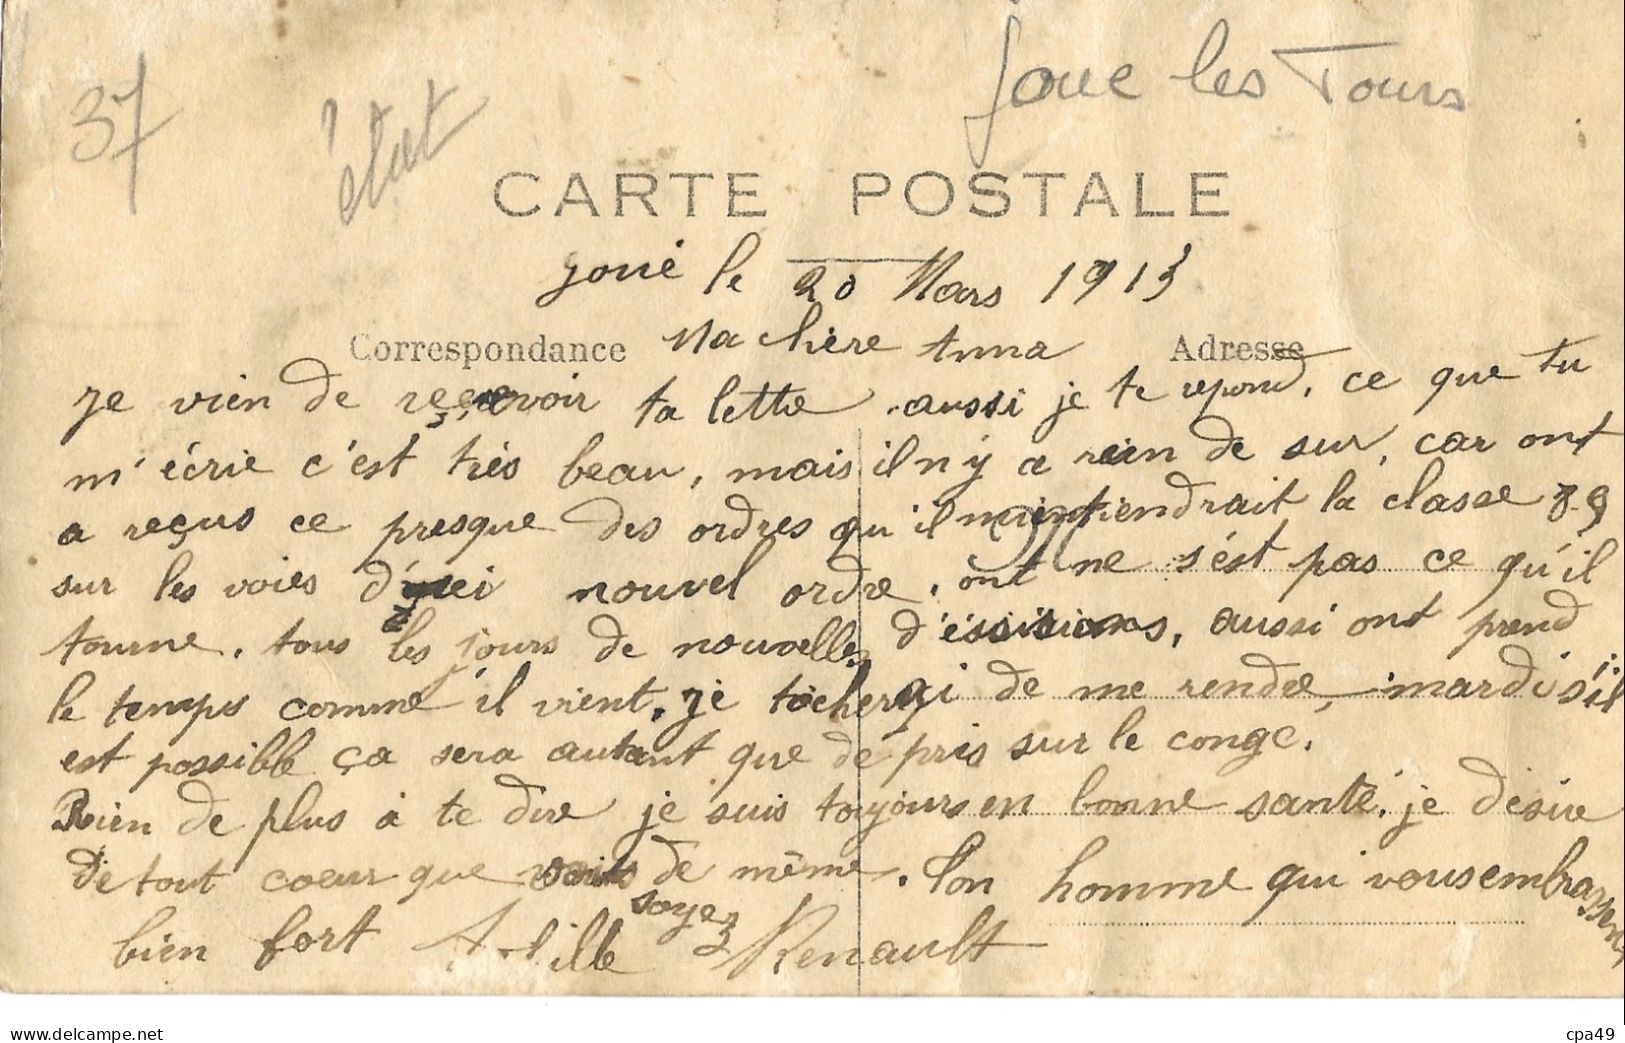 37
état
Joue les Tours
CARTE POSTALE
Joué le 20 Mars 1913
Correspondance
Ma chère Anna
Adresse
Je vien de recevoir ta lettre aussi je te repond, ce que tu
m'écrie c'est très beau, mais il n'y a rien de sur, car ont
a reçus ce presque des ordres qu'il maintiendrait la classe
sur les voies nouvel ordre, ont ne s'ést pas ce qu'il
tourne, tous les jours de nouvelles aussi ont prend
le temps comme il vient, je tâcherai de me rendre mardi s'il
est possible ça sera autant que de pris sur le congé.
Rien de plus à te dire je suis toujours en bonne santé, je désire
de tout coeur que vous soyez de même. Ton homme qui vous embrassent
bien fort Achille Renault
delcampe.net
cpa49